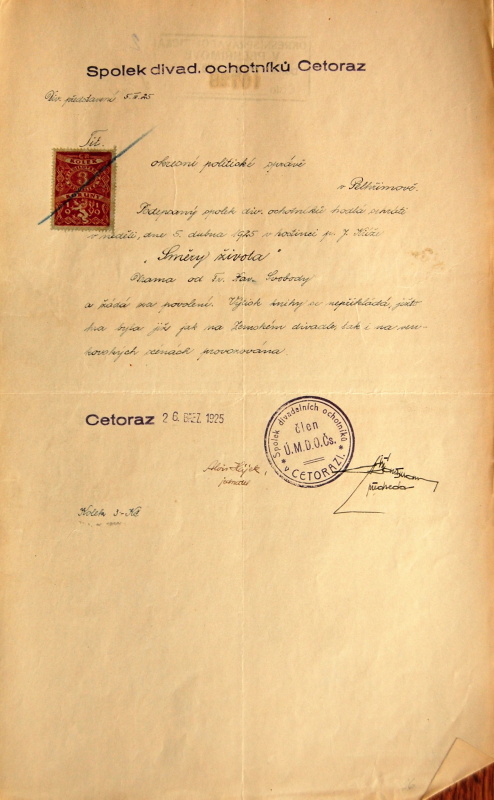 Spolek divad. ochotníků Cetoraz
Div. představení 5.4.25
Tit.
KOLEK
3
KORUNY
okresní politické správě
v Pelhřimově.
Podepsaný spolek div. ochotníků hodlá sehráti
v neděli, dne 5. dubna 1925 v hostinci p. J. Kříže
„Směry života"
Drama od Fr. Xav. Svobody
a žádá za povolení. Výtisk knihy se nepřikládá, ješto
hra byla již jak na Zemském divadle, tak i na ven-
kovských scénách provozována.
Cetoraz 26 BŘEZ. 1925
Spolek divadelních ochotníků
člen
Ú.M.D.O.Čs.
* v CETORAZI. *
jednatel
předseda
Kolek 3-Kč